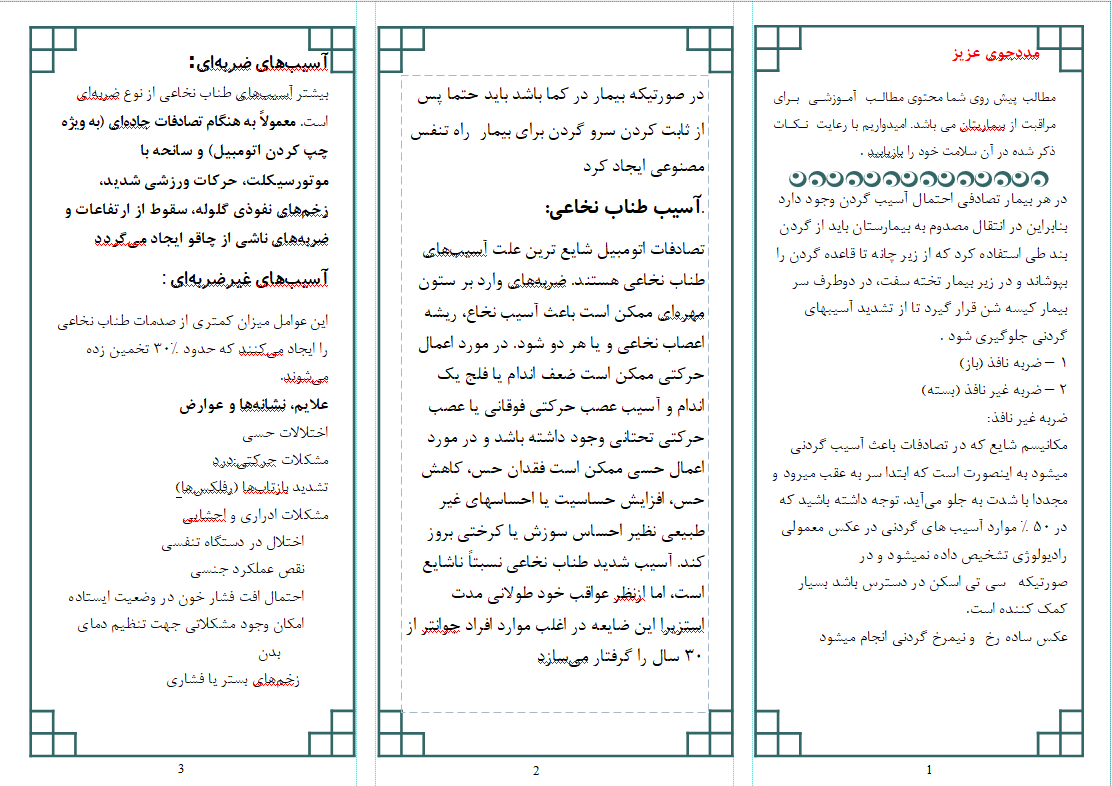 مددجوی عزیز
مطالب پیش روی شما محتوی مطالب آموزشی برای
مراقبت از بیماریتان می باشد. امیدواریم با رعایت نکات
ذکر شده در آن سلامت خود را بازیابید .
در هر بیمار تصادفی احتمال آسیب گردن وجود دارد
بنابراین در انتقال مصدوم به بیمارستان باید از گردن
بند طی استفاده کرد که از زیر چانه تا قاعده گردن را
بپوشاند و در زیر بیمار تخته سفت، در دوطرف سر
بیمار کیسه شن قرار گیرد تا از تشدید آسیبهای
گردنی جلوگیری شود .
۱ – ضربه نافذ (باز)
۲ – ضربه غیر نافذ (بسته)
ضربه غیر نافذ:
مکانیسم شایع که در تصادفات باعث آسیب گردنی
میشود به اینصورت است که ابتدا سر به عقب میرود و
مجددا با شدت به جلو می‌آید. توجه داشته باشید که
در ۵۰ ٪ موارد آسیب های گردنی در عکس معمولی
رادیولوژی تشخیص داده نمیشود و در
صورتیکه سی تی اسکن در دسترس باشد بسیار
کمک کننده است.
عکس ساده رخ و نیمرخ گردنی انجام میشود
1
در صورتیکه بیمار در کما باشد باید حتما پس
از ثابت کردن سرو گردن برای بیمار راه تنفس
مصنوعی ایجاد کرد
.آسیب طناب نخاعی:
تصادفات اتومبیل شایع ترین علت آسیب‌های
طناب نخاعی هستند. ضربه‌های وارد بر ستون
مهره‌ای ممکن است باعث آسیب نخاع، ریشه
اعصاب نخاعی و یا هر دو شود. در مورد اعمال
حرکتی ممکن است ضعف اندام یا فلج یک
اندام و آسیب عصب حرکتی فوقانی یا عصب
حرکتی تحتانی وجود داشته باشد و در مورد
اعمال حسی ممکن است فقدان حس، کاهش
حس، افزایش حساسیت یا احساسهای غیر
طبیعی نظیر احساس سوزش یا کرختی بروز
کند. آسیب شدید طناب نخاعی نسبتاً ناشایع
است، اما ازنظر عواقب خود طولانی مدت
استزیرا این ضایعه در اغلب موارد افراد جوانتر از
۳۰ سال را گرفتار می‌سازد
2
آسیب‌های ضربه‌ای:
بیشتر آسیب‌های طناب نخاعی از نوع ضربه‌ای
است. معمولاً به هنگام تصادفات جاده‌ای (به ویژه
چپ کردن اتومبیل) و سانحه با
موتورسیکلت، حرکات ورزشی شدید،
زخم‌های نفوذی گلوله، سقوط از ارتفاعات و
ضربه‌های ناشی از چاقو ایجاد می‌گردد
آسیب‌های غیرضربه‌ای :
این عوامل میزان کمتری از صدمات طناب نخاعی
را ایجاد می‌کنند که حدود ۳۰٪ تخمین زده
می‌شوند.
علایم، نشانه‌ها و عوارض
اختلالات حسی
مشکلات حرکتی:درد
تشدید بازتاب‌ها (رفلکس‌ها)
مشکلات ادراری و احشایی
اختلال در دستگاه تنفسی
نقص عملکرد جنسی
احتمال افت فشار خون در وضعیت ایستاده
امکان وجود مشکلاتی جهت تنظیم دمای
بدن
زخم‌های بستر یا فشاری
3